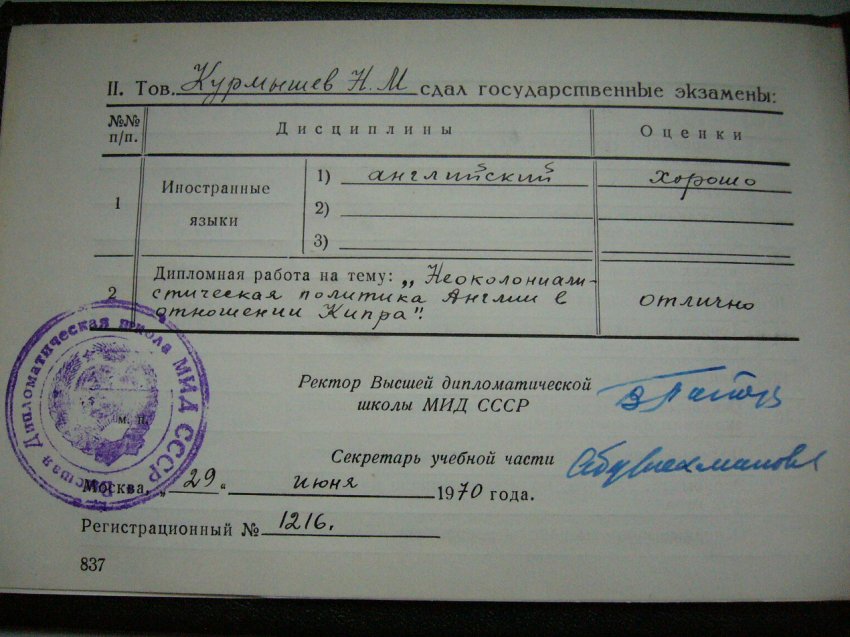 II. Тов. Курмышев Н. М сдал государственные экзамены:
№№ п/п. Дисциплины Оценки
1 Иностранные языки 1) английский хорошо
2)
3)
2 Дипломная работа на тему: „Неоколониали-
стическая политика Англии в
отношении Кипра". отлично
Высшая Дипломатическая школа МИД СССР
м. п.
Ректор Высшей дипломатической
школы МИД СССР
Секретарь учебной части
Москва, „29" июня 1970 года.
Регистрационный № 1216.
837